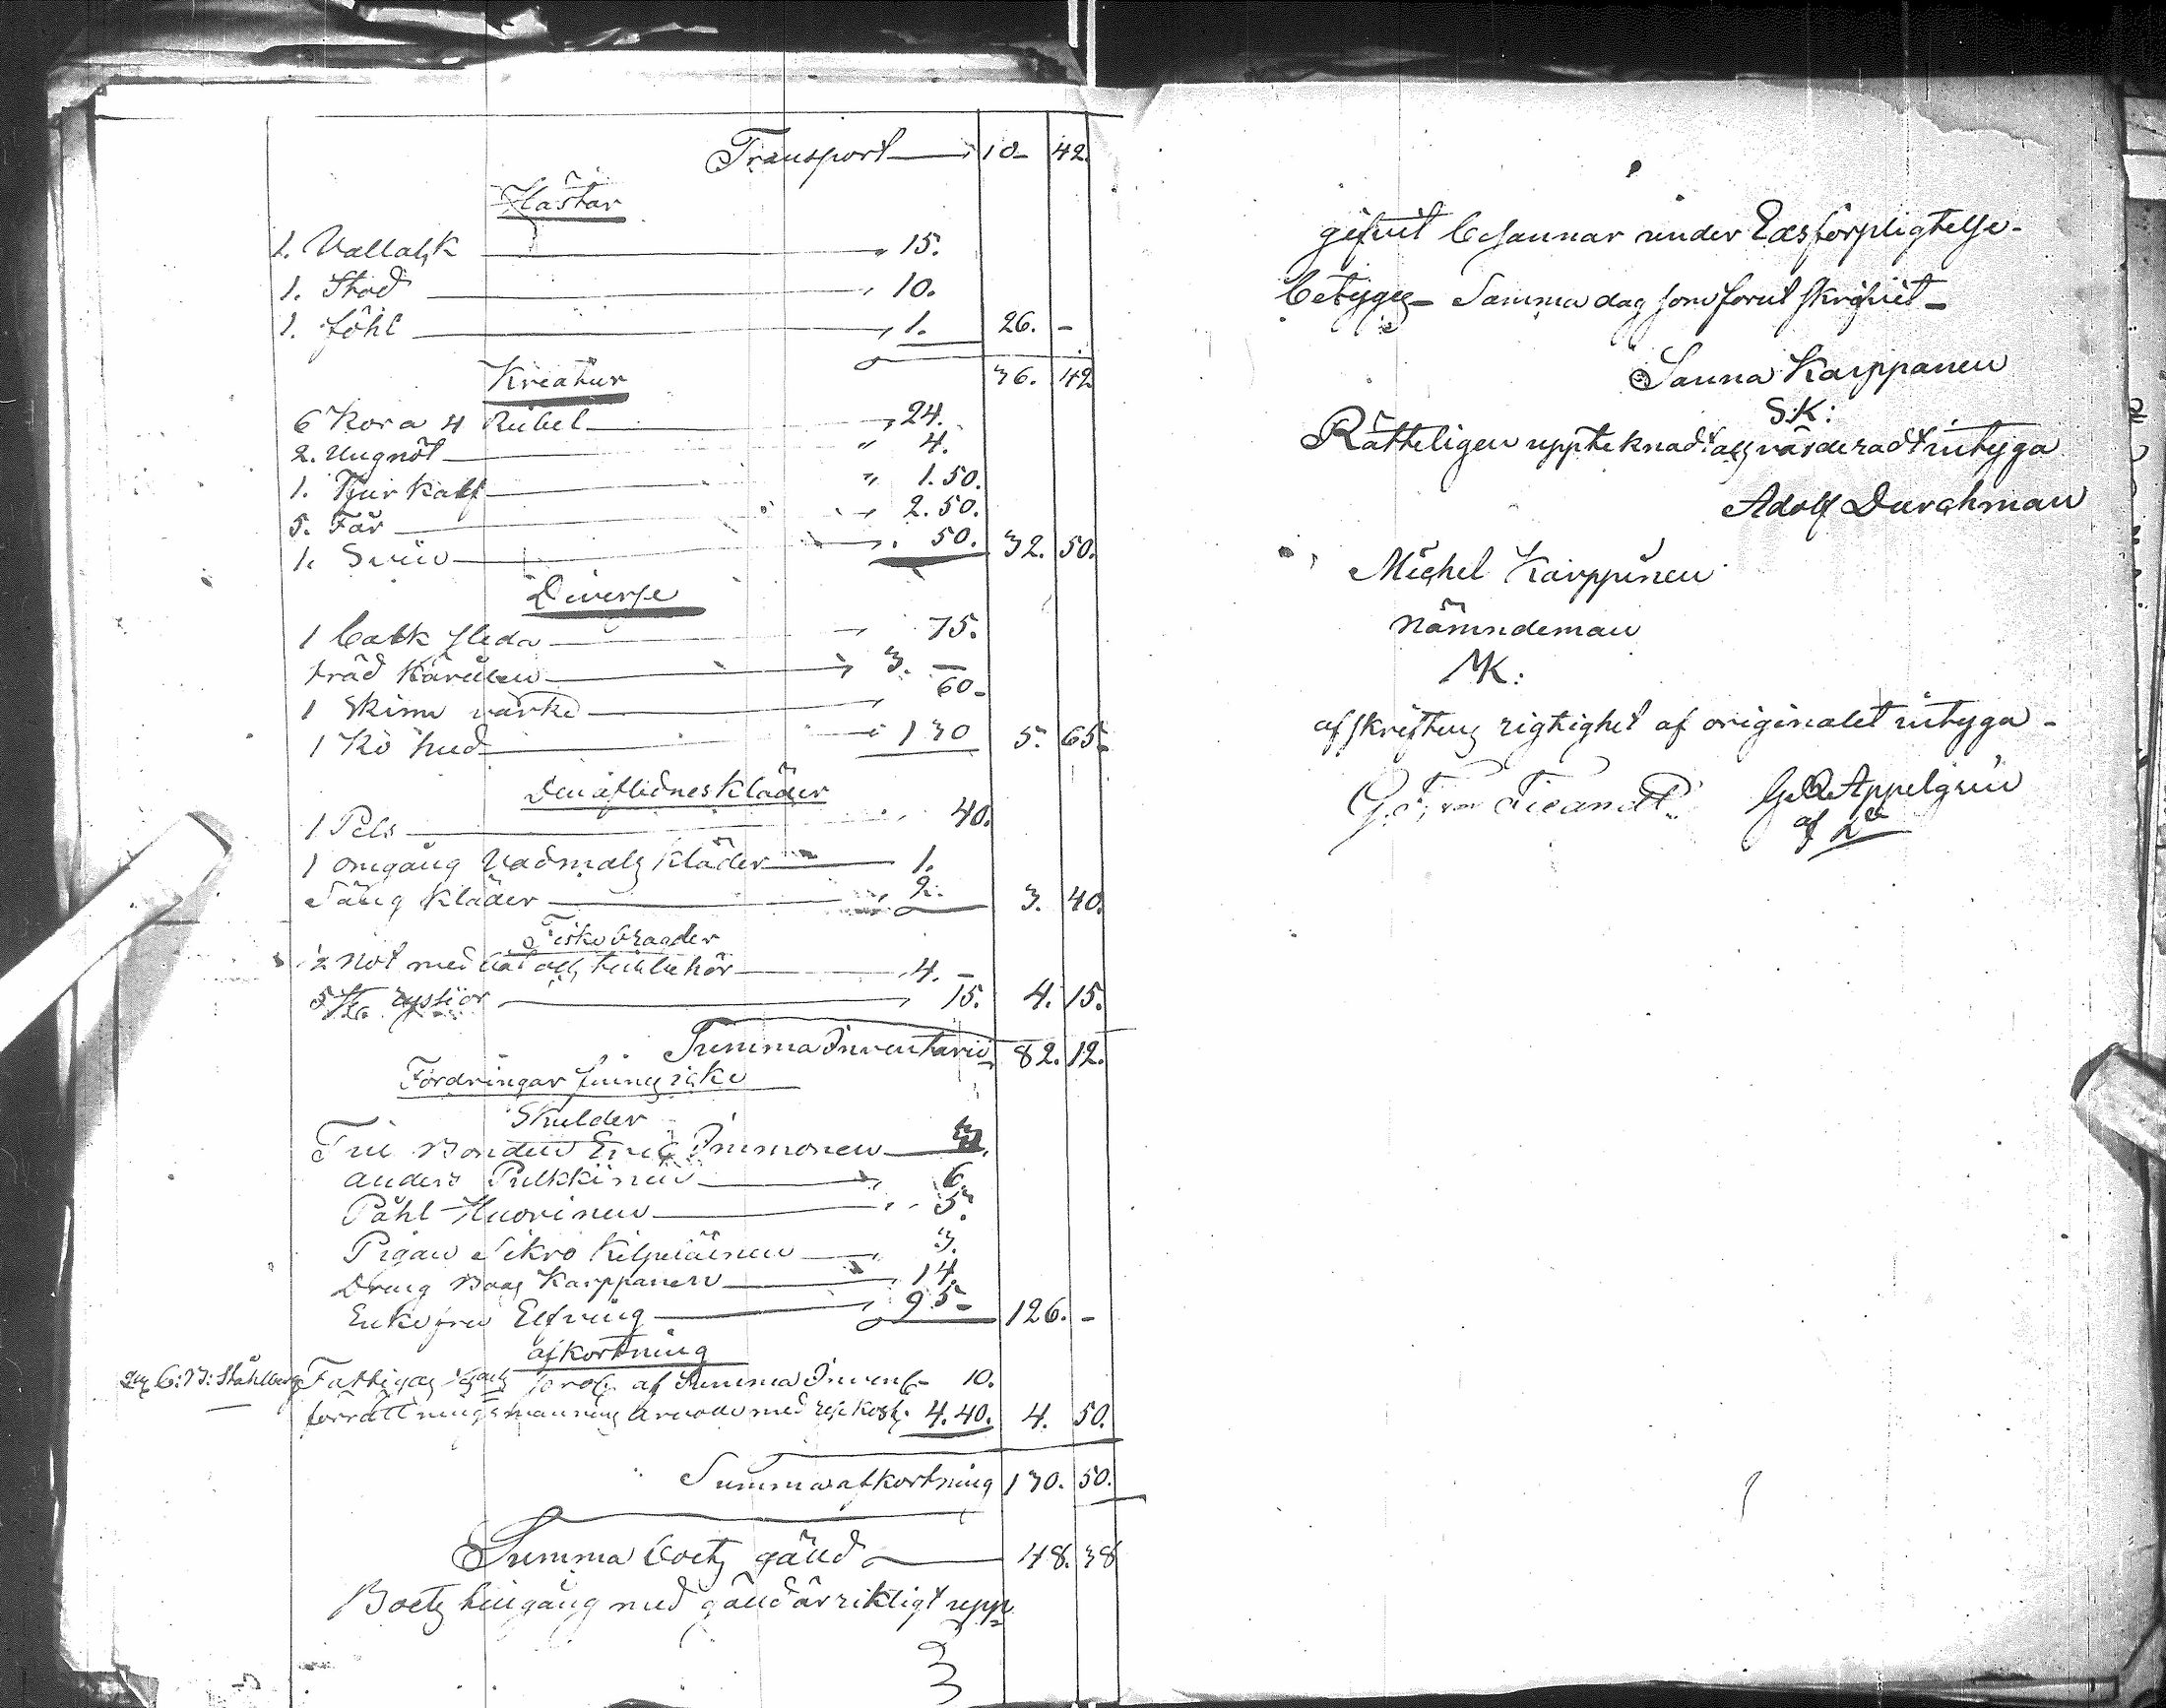 Transport — 10 — 42.
Hästar
1. Vallack — " 15.
1. Stod — " 10.
1. föhl — " 1. 26. -
36. 42
Kreatur
6 Kor a 4 Rubel — " 24.
2. Ungnöt — " 4.
1. Tjur kalf — " 1.50.
5. Får — " 2.50.
1. Sviin — " 50. 32. 50.
Diverse
1 bätk sleda — " 75.
träd Kärillen — " 3. —
1 Skinn värke — " 60 -
1 Ko hud — " 1 30 5. 65.
Den aflidnes Kläder
1 Pels — " 40.
1 omgång Vadmals Kläder — 1.
Säng Kläder — " 2. 3. 40.
Fiske bragder
½ Not med båt och tillbehör — 4. —
5 st. ryssior — " 15. 4. 15.
Summa Inventarii 82. 12.
Fordringar finnes icke
Skulder
Till Bonden Eric Immonen —
Anders Pulkkinen — " 6.
Påhl Huovinen — " 5.
Pigan Sikro Kilpeläinen — " 3.
Dräng Karppanen — " 14.
Enkefru Elfving — " 95 - 126. -
afkortning
C: N: Ståhlberg Fattigas proc: af Summa Invent - 10.
förrättningsmännens arvode med resekost. 4.40. 4. 50.
Summa afkortning 130. 50.
Summa boets gäld — 48. 38
Boets hingång med gäld är riktigt upp
gifvit besannar under Edsförpligtelse -
betyges - Samma dag som forut skrifvit -
Sanna Karppanen
S:K:
Rätteligen uppteknadt och värderadt intyga
Adolf Durchman
Michel Karppinen
Nämndeman
MK:
afskriftens rigtighet af originalet intyga -
G. F. von Fieandt. G. R. Appelgrén
3